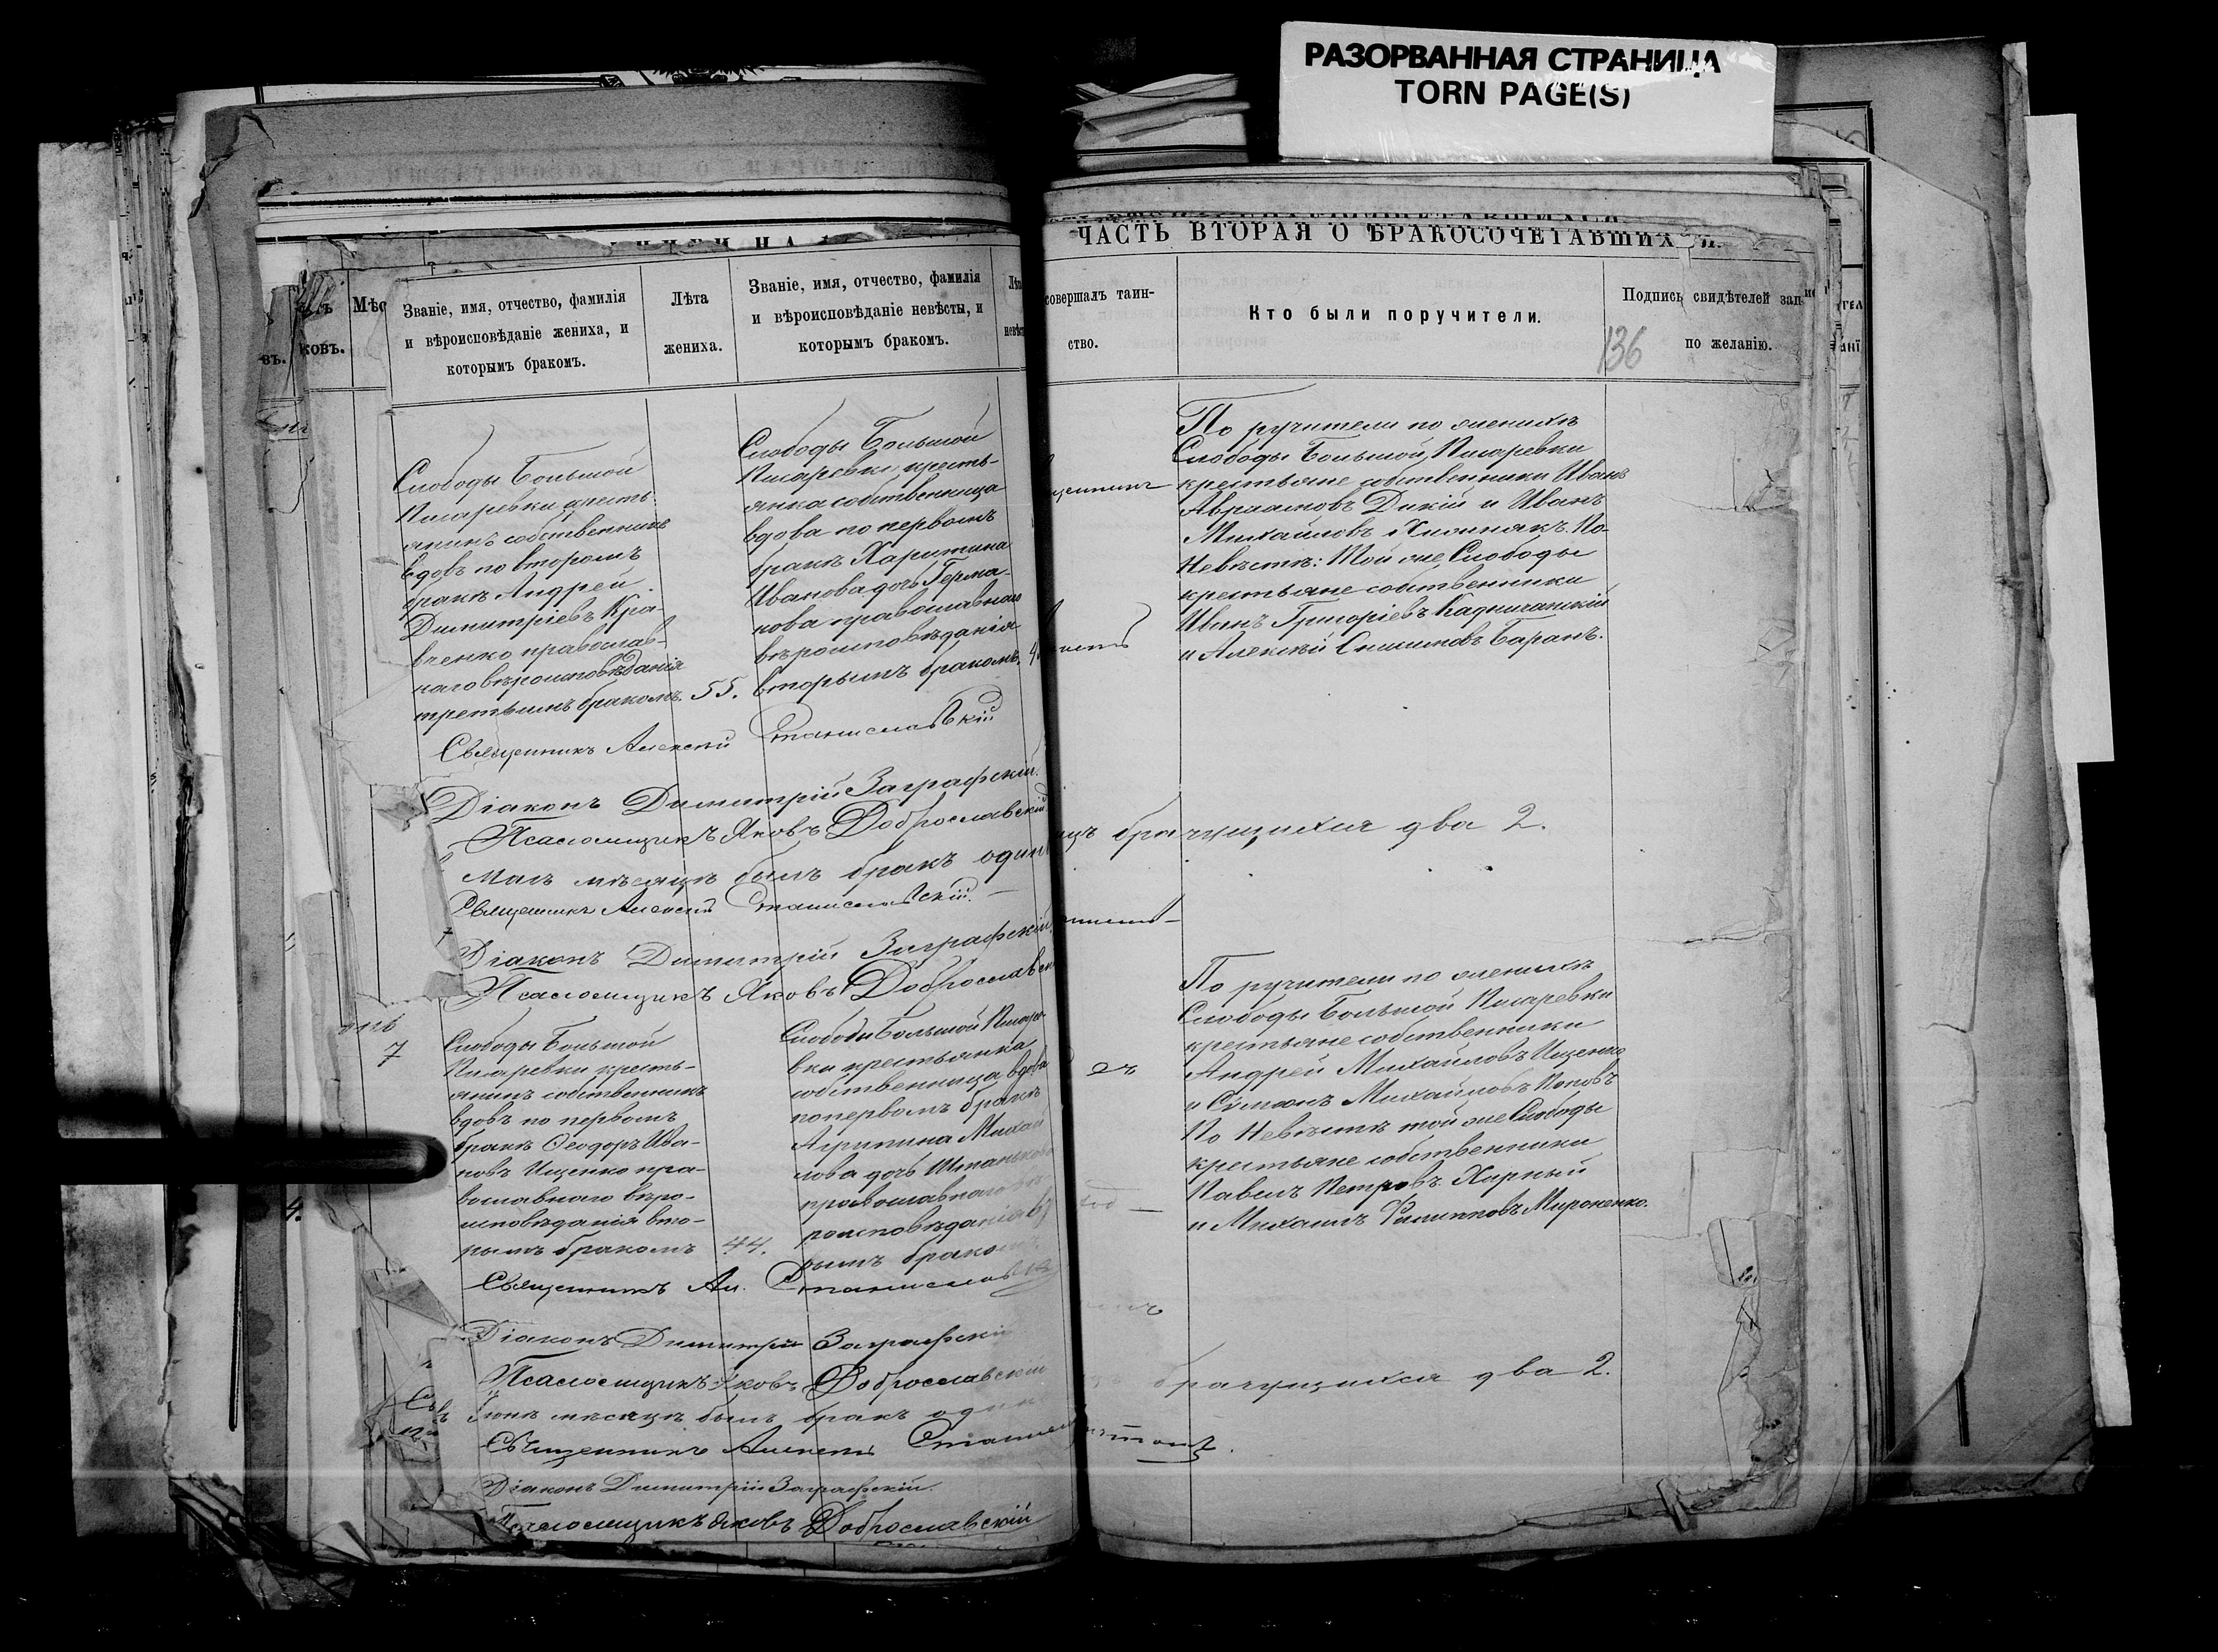 РАЗОРВАННАЯ СТРАНИЦА
TORN PAGE(S)
ЧАСТЬ ВТОРАЯ О БРАКОСОЧЕТАВШИХСЯ.
въ.
ковъ.
Мѣс
Званіе, имя, отчество, фамилія
и вѣроисповѣданіе жениха, и
которымъ бракомъ.
Лѣта
жениха.
Званіе, имя, отчество, фамилія
и вѣроисповѣданіе невѣсты, и
которымъ бракомъ.
совершалъ таин-
ство.
Кто были поручители.
Подпись свидѣтелей зап
по желанію.
136
Слободы Большой
Писаревки кресть-
янинъ собственникъ
вдовъ по второмъ
бракѣ Андрей
Димитріевъ Кра-
вченко православ-
наго вѣроисповѣданія
третьимъ бракомъ.
55.
Слободы Большой
Писаревки кресть-
янка собственница
вдова по первомъ
бракѣ Харитина
Иванова дочь Герма-
нова православнаго
вѣроисповѣданія
вторымъ бракомъ.
По ручители по женихѣ
Слободы Большой Писаревки
крестьяне собственники Иванъ
Авраамовъ Дикій и Иванъ
Михайловъ Хижнякъ. По
Невѣстѣ: Той же Слободы
крестьяне собственники
Иванъ Григоріевъ
и Алексѣй Баранъ.
Священникъ Алексѣй Станиславскій
Діаконъ Димитрій Заграфскій.
Псаломщикъ Яковъ Доброславскій
Маѣ мѣсяцѣ былъ бракъ одинъ
брачущихся два 2.
Священникъ Алексѣй Станиславскій.
Діаконъ Димитрій Заграфскій.
Псаломщикъ Яковъ Доброславск
7
Слободы Большой
Писаревки кресть-
янинъ собственникъ
вдовъ по первомъ
бракѣ Ѳеодоръ Ива-
новъ Ищенко пра-
вославнаго вѣро-
исповѣданія вто-
рымъ бракомъ
44.
Слободы Большой Писаре-
вки крестьянка
собственница вдова
по первомъ бракѣ
Агрипина Михай
лова дочь
православнаго вѣ-
роисповѣданія в
рымъ бракомъ
По ручители по женихѣ
Слободы Большой Писаревки
крестьяне собственники
Андрей Михайловъ Ищенко
и Сумеонъ Михайловъ Поповъ
По Невѣстѣ той же Слободы
крестьяне собственники
Павелъ Петровъ Хирный
и Михаилъ Филипповъ Мироненко.
Священникъ Ал. Станиславскій
Діаконъ Димитрій Заграфскій
Псаломщикъ Яковъ Доброславскій
Іюнѣ мѣсяцѣ былъ бракъ одинъ
брачущихся два 2.
Священникъ Алексѣй
Діаконъ Димитрій Заграфскій.
Псаломщикъ Яковъ Доброславскій